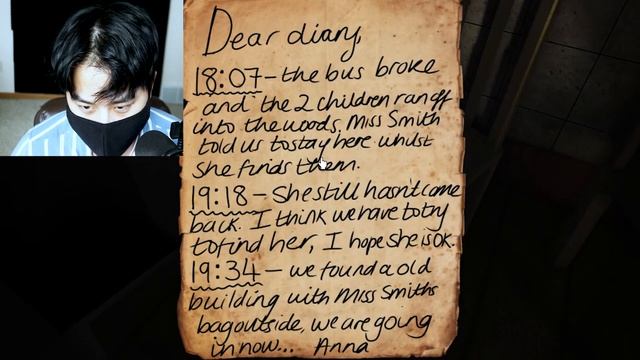 Dear diary,
18:07 - the bus broke
and the 2 children ran off
into the woods, Miss Smith
told us to stay here whilst
she finds them.
19:18 - She still hasn't come
back. I think we have to try
to find her, I hope she is ok.
19:34 - we found a old
building with Miss Smiths
bag outside, we are going
in now... Anna